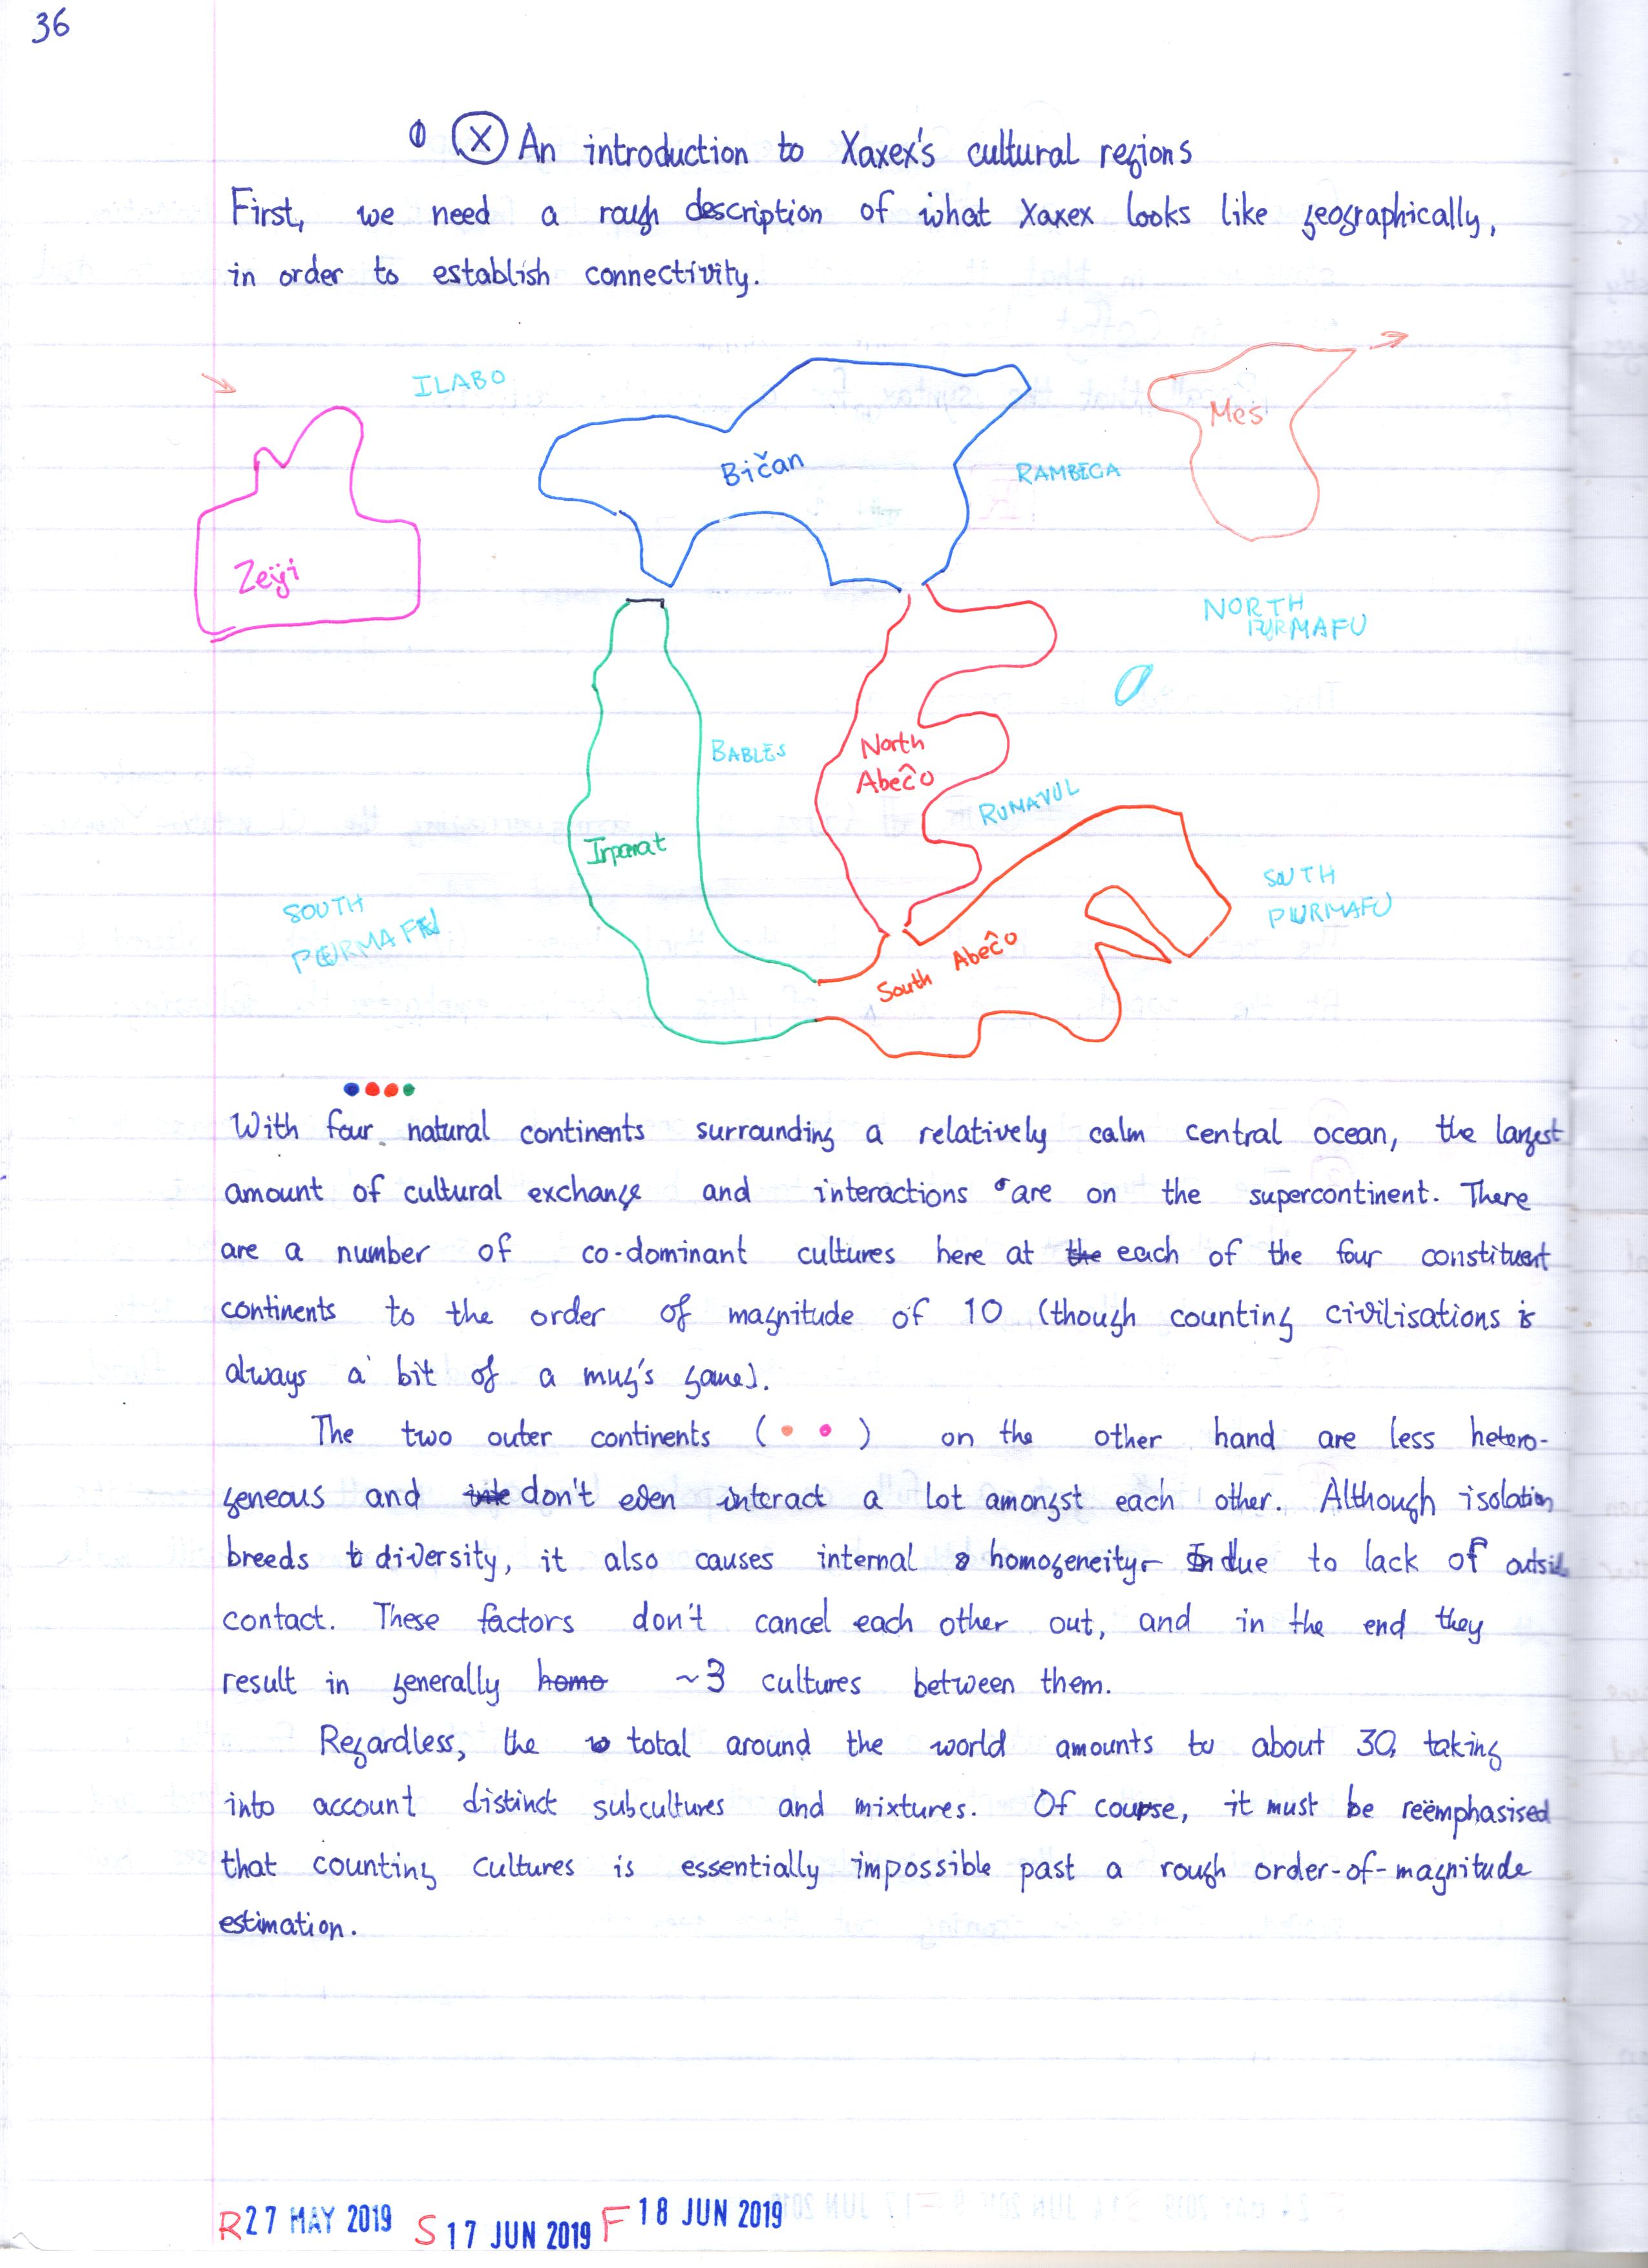 36
Ⓧ An introduction to Xaxex's cultural regions
First, we need a rough description of what Xaxex looks like geographically,
in order to establish connectivity.
ILABO
Bičan
Mes
RAMBEGA
Zeÿi
NORTH
PURMAFU
BABLES
North
Abeĉo
RUMAVUL
Irparat
SOUTH
PURMAFU
SOUTH
PURMAFU
South Abeĉo
With four natural continents surrounding a relatively calm central ocean, the largest
amount of cultural exchange and interactions are on the supercontinent. There
are a number of co-dominant cultures here at the each of the four constituent
continents to the order of magnitude of 10 (though counting civilisations is
always a bit of a mug's game).
The two outer continents ( • • ) on the other hand are less hetero-
geneous and don't even interact a lot amongst each other. Although isolation
breeds diversity, it also causes internal homogeneity due to lack of outside
contact. These factors don't cancel each other out, and in the end they
result in generally homo ~3 cultures between them.
Regardless, the total around the world amounts to about 30, taking
into account distinct subcultures and mixtures. Of course, it must be reëmphasised
that counting cultures is essentially impossible past a rough order-of-magnitude
estimation.
R 27 MAY 2019 S 17 JUN 2019 F 18 JUN 2019